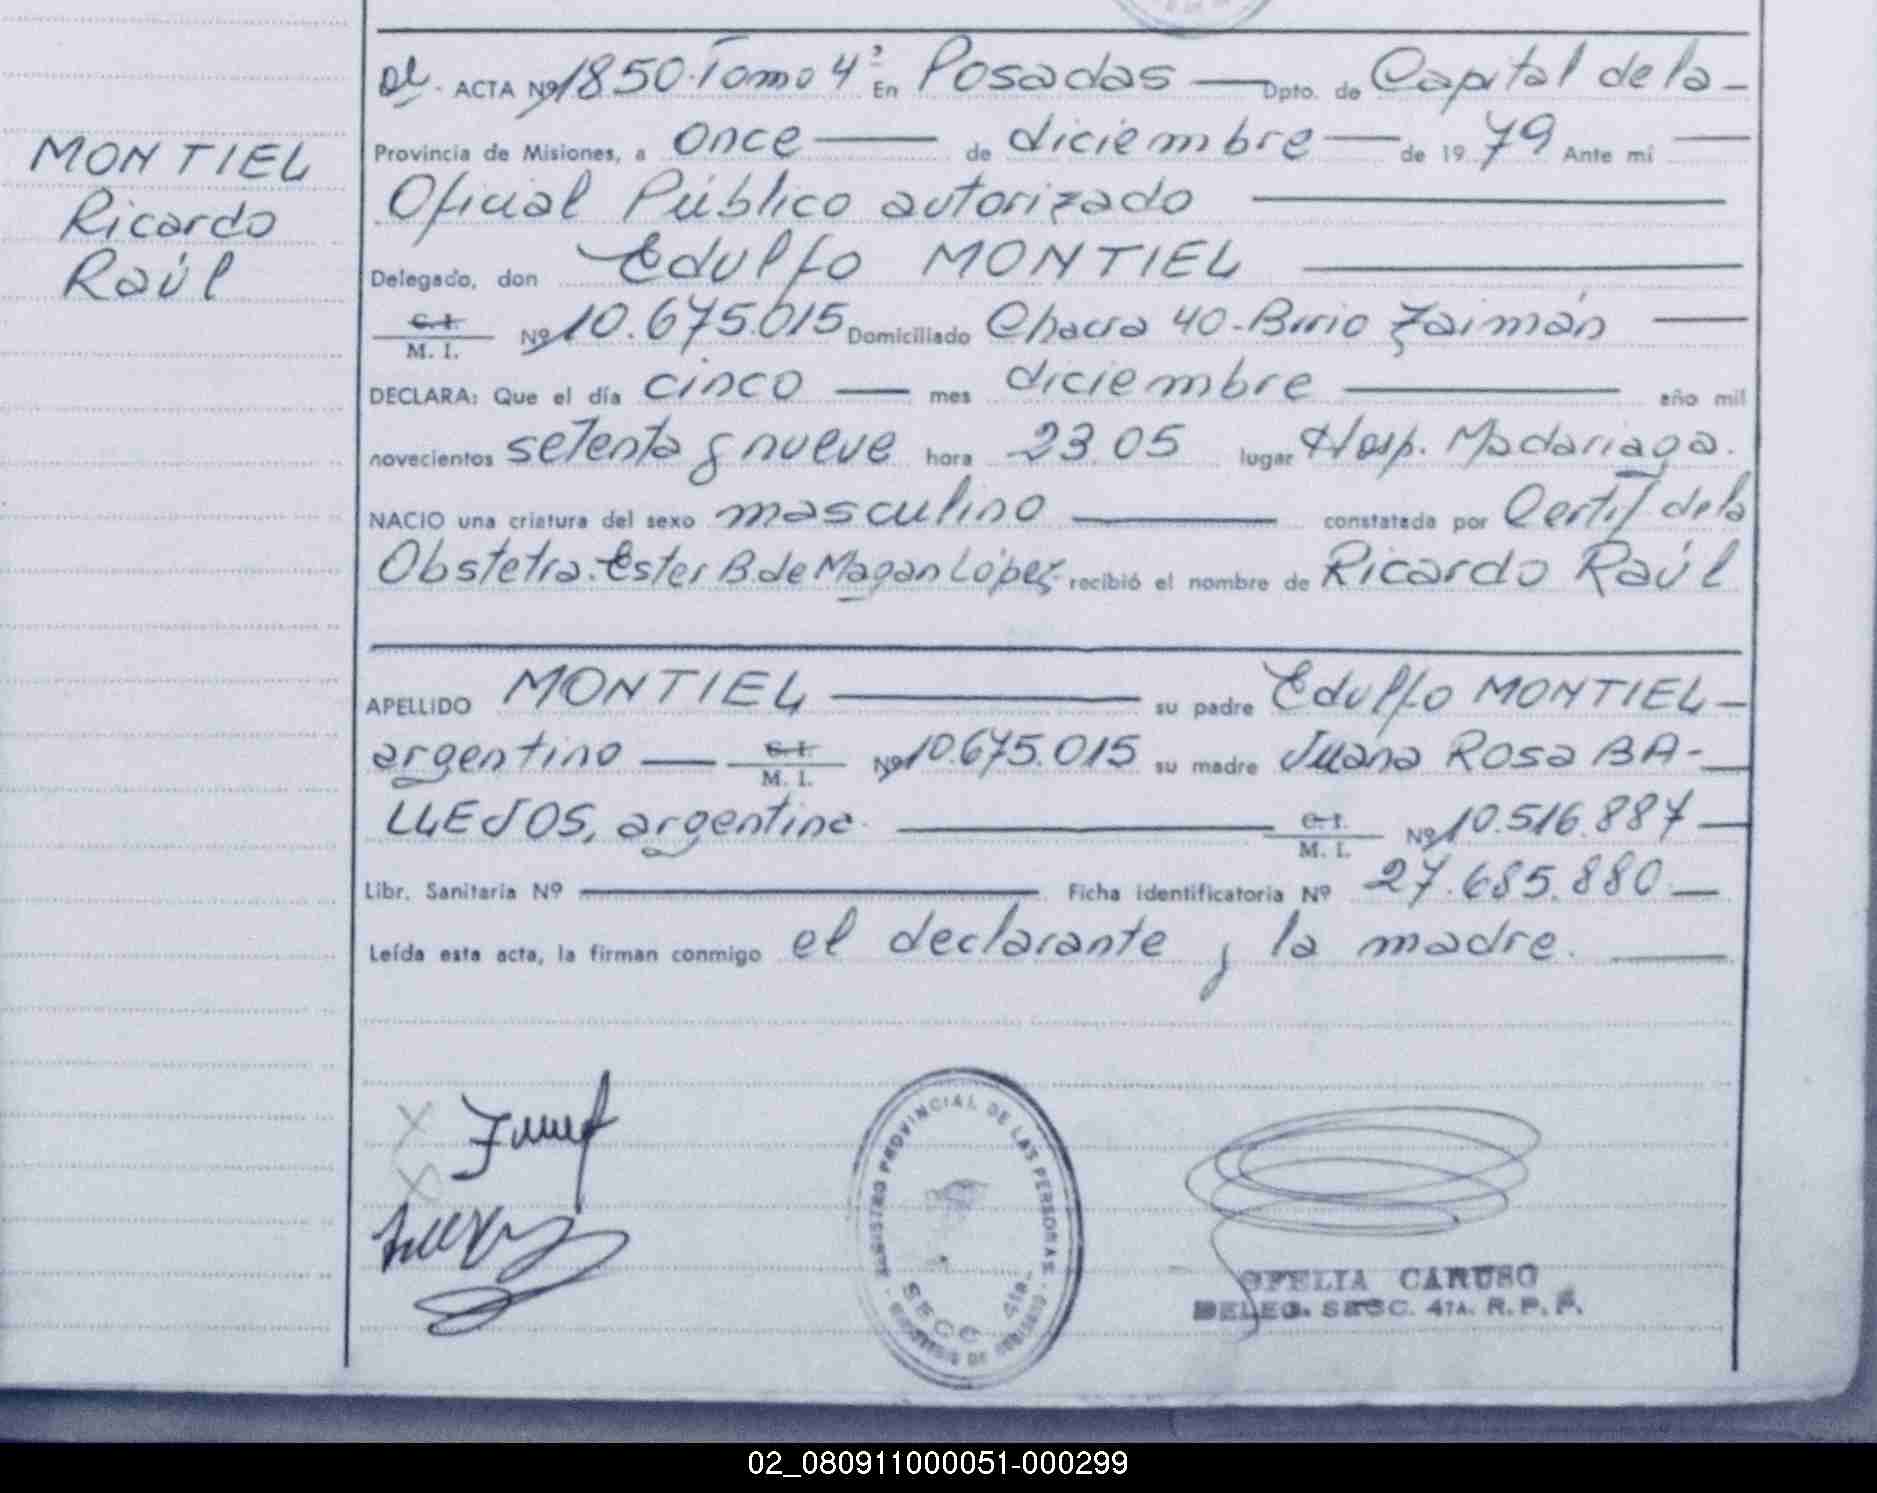 MONTIEL
Ricardo
Raúl
ACTA Nº 1850. Tomo 4º En Posadas — Dpto. de Capital de la —
Provincia de Misiones, a once — de diciembre — de 1979 Ante mí —
Oficial Público autorizado —
Delegado, don Edulfo MONTIEL —
C. I.
M. I. Nº 10.675.015 Domiciliado Chacra 40 - Brrio Zaimán —
DECLARA: Que el día cinco — mes diciembre — año mil
novecientos setenta y nueve hora 23.05 lugar Hosp. Madariaga.
NACIO una criatura del sexo masculino — constatada por Certif de la
Obstetra. Ester B. de Magan López recibió el nombre de Ricardo Raúl
APELLIDO MONTIEL — su padre Edulfo MONTIEL —
argentino — C. I. / M. I. Nº 10.675.015 su madre Juana Rosa BA-
LLEJOS, argentina. — C. I. / M. I. Nº 10.516.887 —
Libr. Sanitaria Nº — Ficha identificatoria Nº 27.685.880 —
Leída esta acta, la firman conmigo el declarante y la madre. —
REGISTRO PROVINCIAL DE LAS PERSONAS
SECC. 4ta.
OFELIA CARUSO
DELEG. SECC. 4TA. R. P. P.
02_080911000051-000299